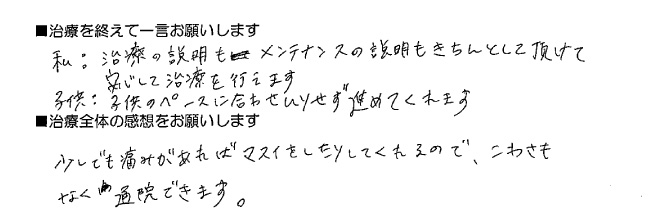 ■治療を終えて一言お願いします
私：治療の説明も メンテナンスの説明もきちんとして頂けて
安心して治療を行えます
子供：子供のペースに合わせ せず進めてくれます
■治療全体の感想をお願いします
少しでも痛みがあればマスイをしたりしてくれるので、こわさも
なく 通院できます。